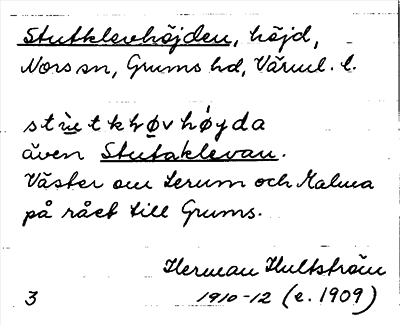 Stutklevhöjden, höjd,
Nors sn, Grums hd, Värml. l.
även Stutaklevan.
Väster om Lerum och Malma
på rået till Grums.
Herman Hultström
3 1910-12 (e. 1909)